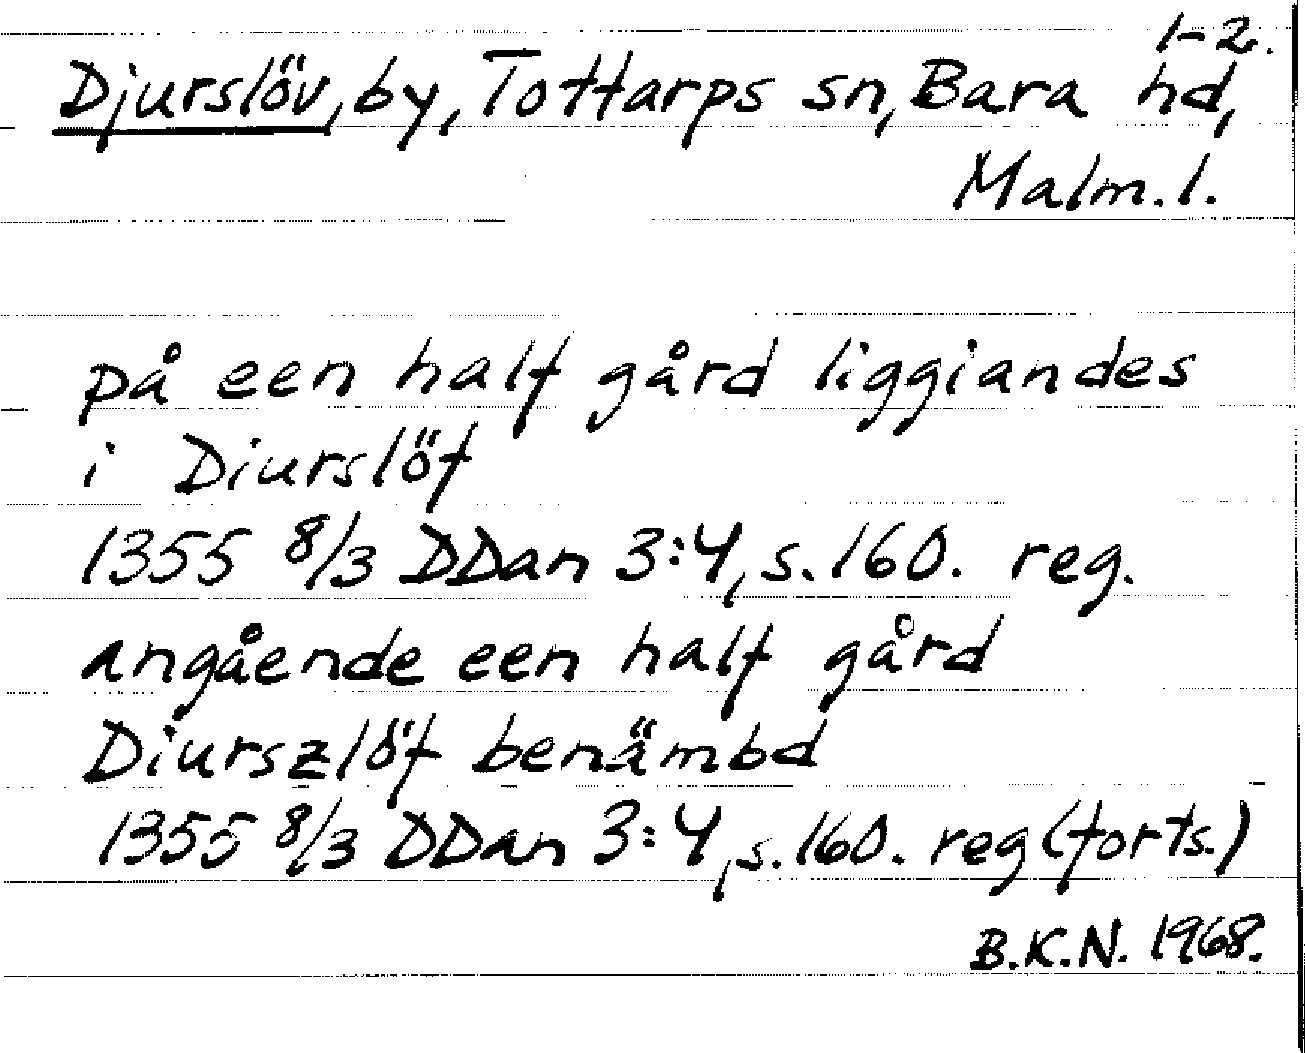 1-2.
Djurslöv, by, Tottarps sn, Bara hd,
Malm. l.
på een half gård liggiandes
i Diurslöf
1355 8/3 DDan 3:4, s. 160. reg.
angående een half gård
Diurszlöf benämbd
1355 8/3 DDan 3:4, s. 160. reg (forts.)
B.K.N. 1968.